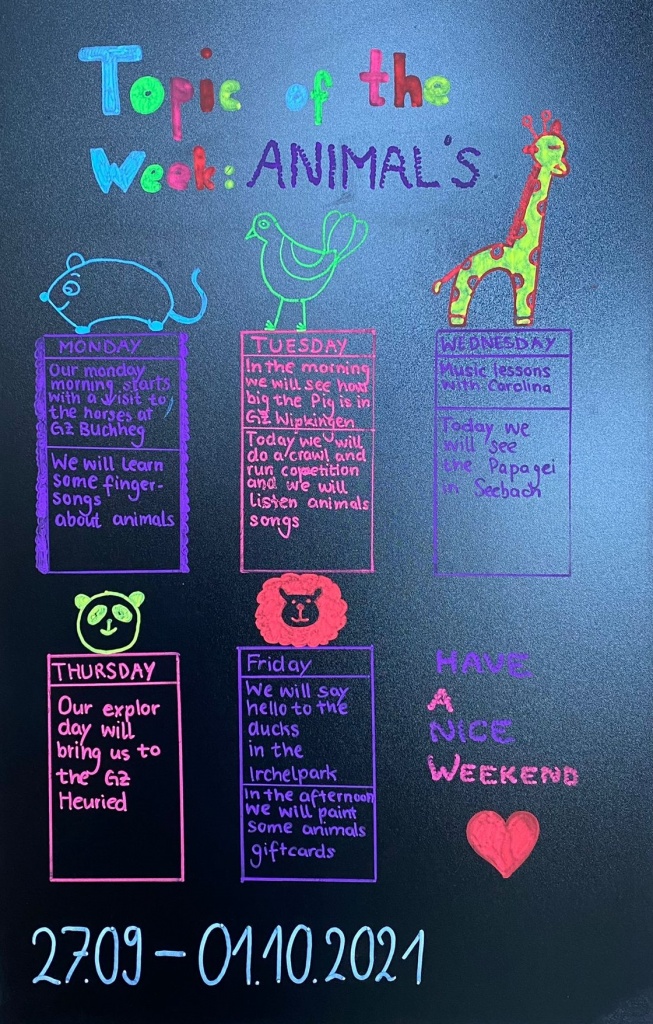 Topic of the
Week: ANIMAL'S
MONDAY
Our monday
morning starts
with a visit to
the horses at
GZ Buchheg
We will learn
some finger-
songs
about animals
TUESDAY
In the morning
we will see how
big the Pig is in
GZ Wipkingen
Today we will
do a crawl and
run copetition
and we will
listen animals
songs
WEDNESDAY
Music lessons
with Carolina
Today we
will see
the Papagei
in Seebach
THURSDAY
Our explor
day will
bring us to
the GZ
Heuried
Friday
We will say
hello to the
ducks
in the
Irchelpark
In the afternoon
we will paint
some animals
giftcards
HAVE
A
NICE
WEEKEND
27.09 – 01.10.2021